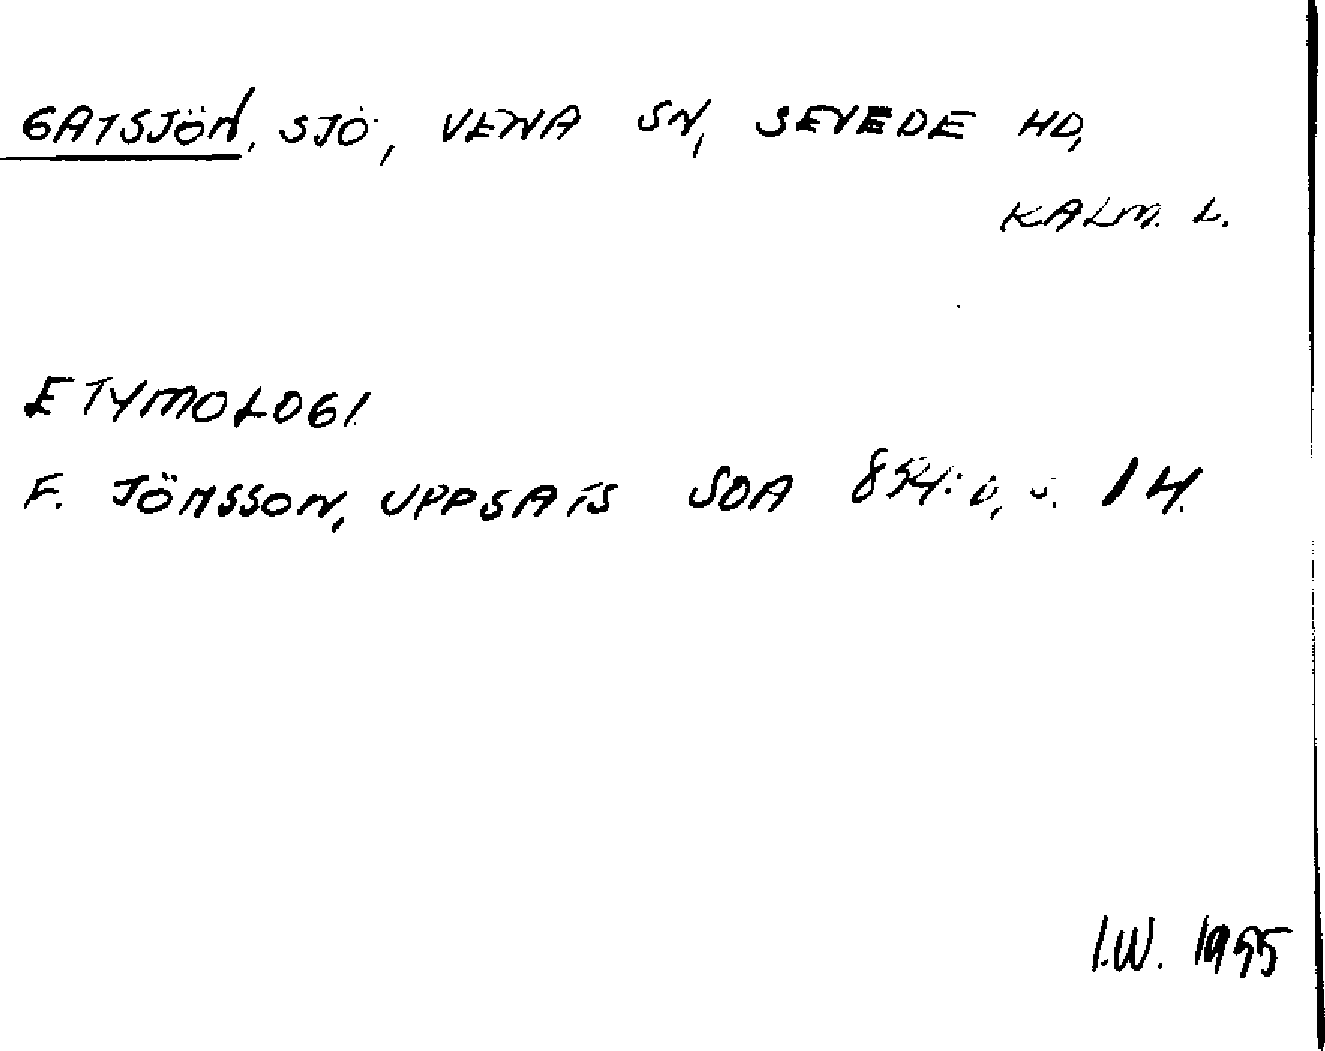 GATSJÖN, SJÖ, VENA SN, SEVEDE HD,
KALM. L.
ETYMOLOGI
F. JÖNSSON, UPPSATS SOA 854: D, S. 14.
I.W. 1955